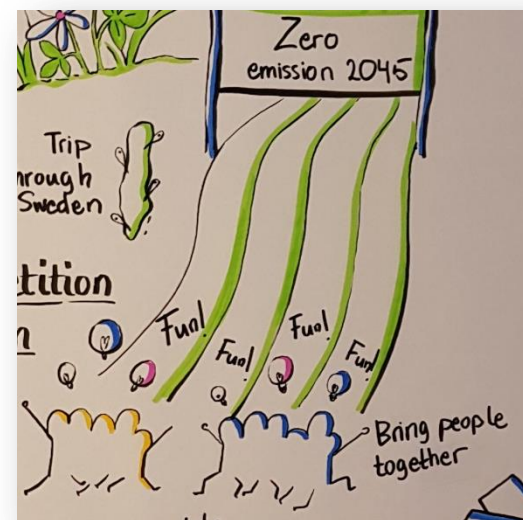 Zero
emission 2045
Trip
hrough
Sweden
tition
n
Fun!
Fun!
Fun!
Fun!
Bring people
together